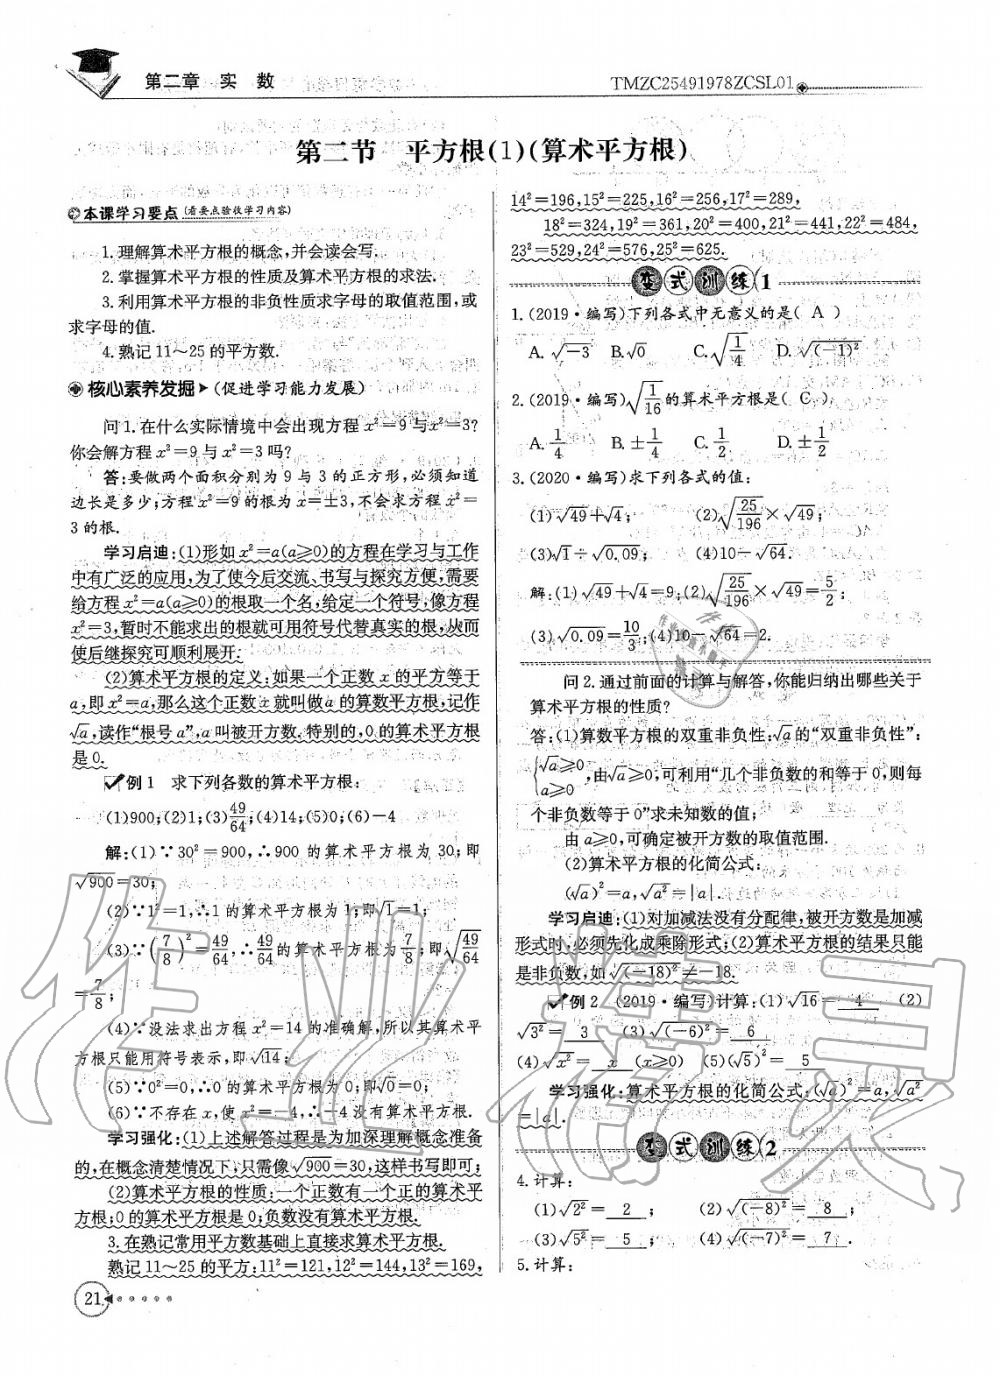 第二章 实 数
TMZC25491978ZCSL01
第二节 平方根(1)(算术平方根)
本课学习要点(看要点验收学习内容)
1.理解算术平方根的概念,并会读会写.
2.掌握算术平方根的性质及算术平方根的求法.
3.利用算术平方根的非负性质求字母的取值范围,或
求字母的值.
4.熟记11～25的平方数.
核心素养发掘(促进学习能力发展)
问1.在什么实际情境中会出现方程x²=9与x²=3?
你会解方程x²=9与x²=3吗?
答:要做两个面积分别为9与3的正方形,必须知道
边长是多少;方程x²=9的根为x=±3,不会求方程x²=
3的根.
学习启迪:(1)形如x²=a(a≥0)的方程在学习与工作
中有广泛的应用,为了使今后交流、书写与探究方便,需要
给方程x²=a(a≥0)的根取一个名,给定一个符号,像方程
x²=3,暂时不能求出的根就可用符号代替真实的根,从而
使后继探究可顺利展开.
(2)算术平方根的定义:如果一个正数x的平方等于
a,即x²=a,那么这个正数x就叫做a的算数平方根,记作
√a,读作“根号a”,a叫被开方数.特别的,0的算术平方根
是0.
例1 求下列各数的算术平方根:
(1)900;(2)1;(3)49/64;(4)14;(5)0;(6)-4
解:(1)∵30²=900,∴900的算术平方根为30;即
√900=30;
(2)∵1²=1,∴1的算术平方根为1;即√1=1;
(3)∵(7/8)²=49/64,∴49/64的算术平方根为7/8;即√(49/64)
=7/8;
(4)∵没法求出方程x²=14的准确解,所以其算术平
方根只能用符号表示,即√14;
(5)∵0²=0,∴0的算术平方根为0;即√0=0;
(6)∵不存在x,使x²=-4,∴-4没有算术平方根.
学习强化:(1)上述解答过程是为加深理解概念准备
的,在概念清楚情况下,只需像√900=30;这样书写即可;
(2)算术平方根的性质:一个正数有一个正的算术平
方根;0的算术平方根是0;负数没有算术平方根.
3.在熟记常用平方数基础上直接求算术平方根.
熟记11～25的平方:11²=121,12²=144,13²=169,
21
14²=196,15²=225,16²=256,17²=289,
18²=324,19²=361,20²=400,21²=441,22²=484,
23²=529,24²=576,25²=625.
变式训练1
1.(2019·编写)下列各式中无意义的是( A )
A.√-3 B.√0 C.√(1/4) D.√(-1)²
2.(2019·编写)√(1/16)的算术平方根是( C )
A.1/4 B.±1/4 C.1/2 D.±1/2
3.(2020·编写)求下列各式的值:
(1)√49+√4; (2)√(25/196)×√49;
(3)√1÷√0.09; (4)10-√64.
解:(1)√49+√4=9;(2)√(25/196)×√49=5/2;
(3)√0.09=10/3;(4)10-√64=2.
问2.通过前面的计算与解答,你能归纳出哪些关于
算术平方根的性质?
答:(1)算数平方根的双重非负性:√a的“双重非负性”:
{√a≥0 a≥0,由√a≥0,可利用“几个非负数的和等于0,则每
个非负数等于0”求未知数的值;
由a≥0,可确定被开方数的取值范围.
(2)算术平方根的化简公式:
(√a)²=a,√a²=|a|.
学习启迪:(1)对加减法没有分配律,被开方数是加减
形式时,必须先化成乘除形式;(2)算术平方根的结果只能
是非负数,如√(-18)²≠-18.
例2 (2019·编写)计算:(1)√16= 4 (2)
√3²= 3 (3)√(-6)²= 6
(4)√x²= x (x≥0) (5)(√5)²= 5
学习强化:算术平方根的化简公式:(√a)²=a,√a²
=|a|.
变式训练2
4.计算:
(1)√2²= 2 ; (2)√(-8)²= 8 ;
(3)√5²= 5 ; (4)√(-7)²= 7 .
5.计算:
作业精灵